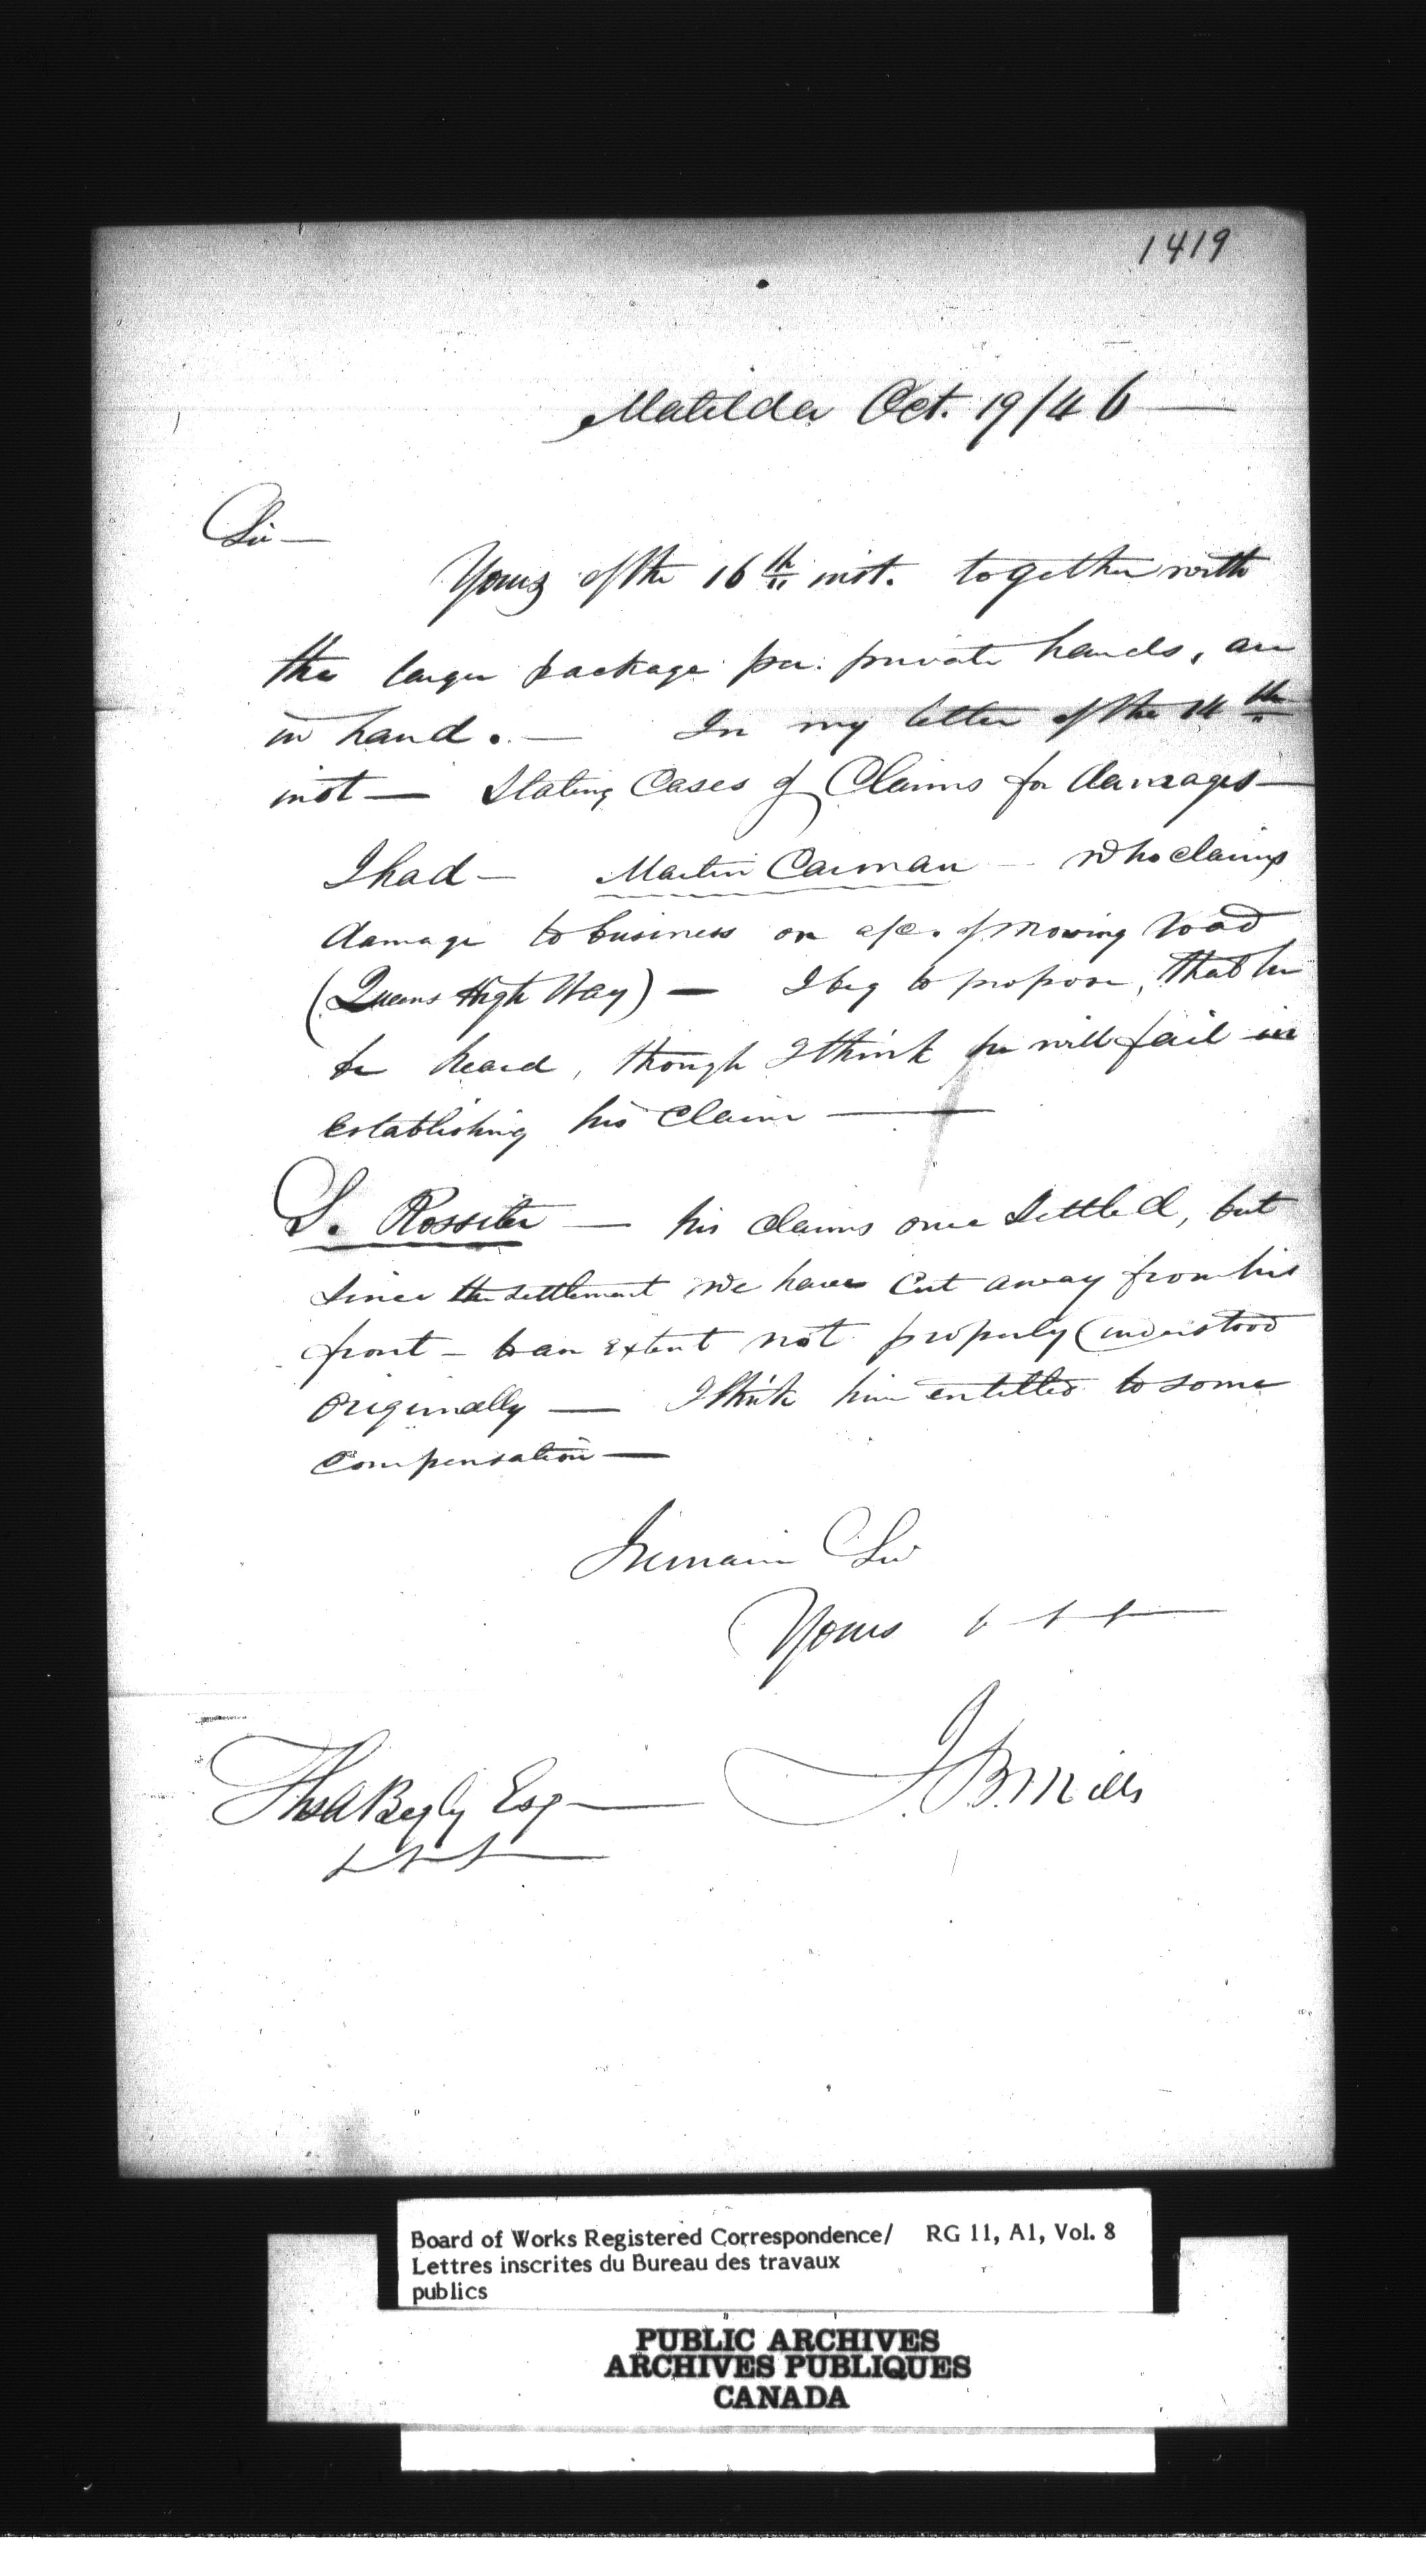 1419
Matilda Oct. 19/46
Sir —
Yours of the 16th inst. together with
the larger package per. private hands, are
in hand. — In my letter of the 14th
inst — Stating Cases of Claims for damages —
I had — Martin Carman — who claims
damage to business on a/c. of moving road
(Queens High Way) — I beg to propose, that he
be heard, though I think he will fail in
establishing his claim —
S. Rossiter — his claims once settled, but
since the settlement we have cut away from his
front — to an extent not properly understood
originally — I think him entitled to some
compensation —
I remain Sir
Yours + + +
J. B. Mills
Thos A Begly Esq —
+ + +
Board of Works Registered Correspondence/ RG 11, A1, Vol. 8
Lettres inscrites du Bureau des travaux
publics
PUBLIC ARCHIVES
ARCHIVES PUBLIQUES
CANADA